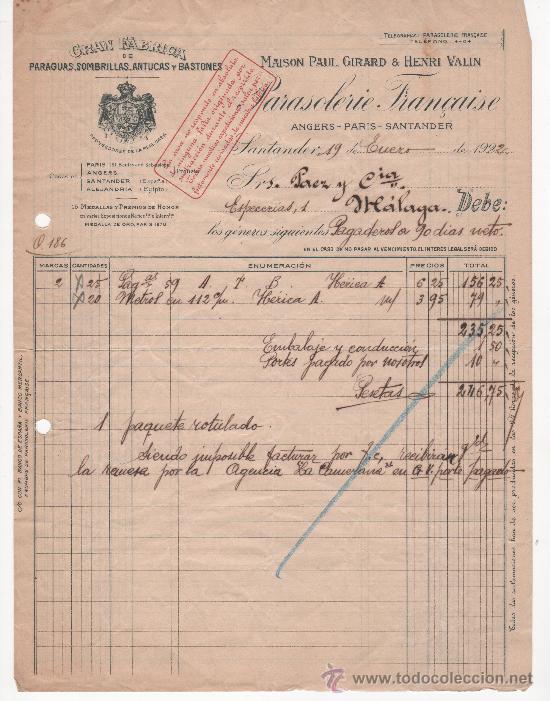 TELEGRAMAS: PARASOLERIE FRANÇAISE
TELÉFONO 4-04
GRAN FÁBRICA
DE
PARAGUAS, SOMBRILLAS, ANTUCAS Y BASTONES
MAISON PAUL GIRARD & HENRI VALIN
Parasolerie Française
ANGERS-PARIS-SANTANDER
PROVEEDORES DE LA REAL CASA
Casas en
PARIS
ANGERS
SANTANDER (España)
ALEJANDRIA (Egipto)
15 MEDALLAS Y PREMIOS DE HONOR
MEDALLA DE ORO, PARIS 1878
Santander, 19 de Enero de 1922
Srs. Paez y Cia
Especerias, 1 Málaga Debe:
los géneros siguientes Pagaderos a 90 dias neto.
EN EL CASO DE NO PAGAR AL VENCIMIENTO, EL INTERÉS LEGAL SERÁ DEBIDO
Q 186
MARCAS CANTIDADES ENUMERACIÓN PRECIOS TOTAL
2 25 59 A B. Iberica A 6 25 156 25
20 en 112 Iberica A. 3 95 79 "
235 25
Embalaje y conduccion 1 50
Portes pagado por nosotros 10 "
Pesetas 246 75
1 paquete rotulado.
Siendo imposible facturar por f.c, recibiran
la remesa por la Agencia "La Camerana" en G.V. porte pagado
C/C CON EL BANCO DE ESPAÑA Y BANCO MERCANTIL
A NOMBRE DE PARASOLERIE FRANÇAISE
todocoleccion.net